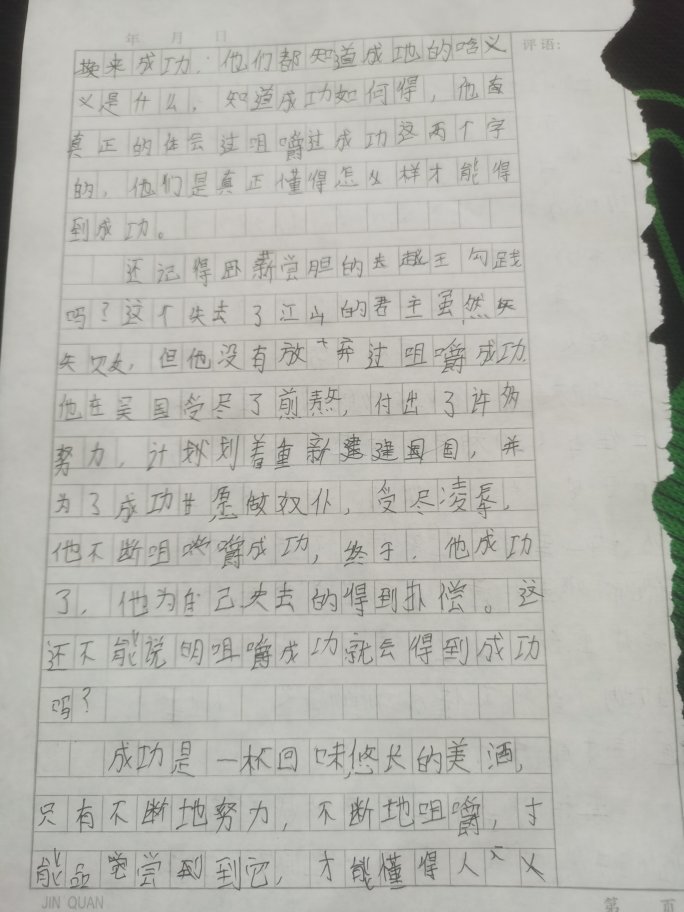 年 月 日
评语:
换来成功.他们都知道成地的啥义
义是什么,知道成功如何得,他有
真正的体会过咀嚼过成功这两个字
的,他们是真正懂得怎么样才能得
到成功。
还记得卧薪尝胆的去越王勾践
吗?这个失去了江山的君主虽然
失败,但他没有放弃过咀嚼成功.
他在吴国受尽了煎熬,付出了许多
努力,计划划着重新建建国国,并
为了成功甘愿做奴仆,受尽凌辱,
他不断咀嚼成功,终于.他成功
了,他为自己失去的得到补偿。这
还不能说明咀嚼成功就会得到成功
吗?
成功是一杯回味悠长的美酒,
只有不断地努力,不断地咀嚼,才
能品尝到到它,才能懂得人
JIN QUAN
第 页